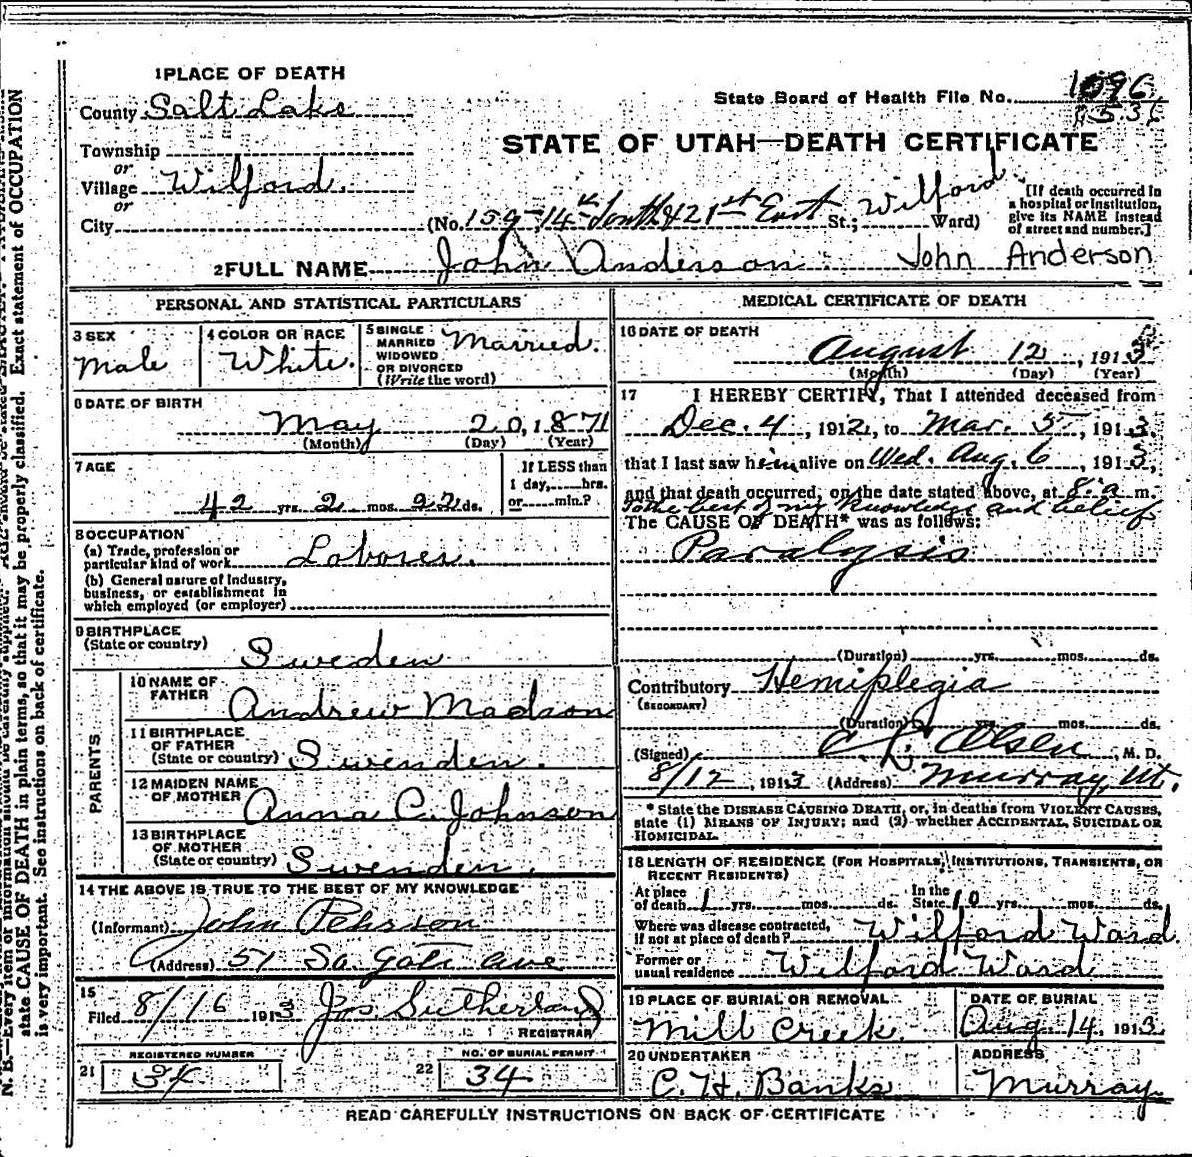 1 PLACE OF DEATH
County Salt Lake
State Board of Health File No. 1096
Township
or
Village Wilford.
or
City
STATE OF UTAH—DEATH CERTIFICATE
(No. 159-14th South & 21st East St.; Wilford Ward)
[If death occurred in
a hospital or institution,
give its NAME instead
of street and number.]
2 FULL NAME John Anderson John Anderson
PERSONAL AND STATISTICAL PARTICULARS
3 SEX
Male
4 COLOR OR RACE
White.
5 SINGLE
MARRIED
WIDOWED
OR DIVORCED
(Write the word)
Married.
6 DATE OF BIRTH
May 20, 1871
(Month) (Day) (Year)
7 AGE
42 yrs. 2 mos. 22 ds.
If LESS than
1 day, hrs.
or min.?
8 OCCUPATION
(a) Trade, profession or
particular kind of work Laborer.
(b) General nature of Industry,
business, or establishment in
which employed (or employer)
9 BIRTHPLACE
(State or country)
Sweden
PARENTS
10 NAME OF
FATHER
Andrew Madson
11 BIRTHPLACE
OF FATHER
(State or country) Swenden.
12 MAIDEN NAME
OF MOTHER
Anna C. Johnson
13 BIRTHPLACE
OF MOTHER
(State or country) Swenden.
14 THE ABOVE IS TRUE TO THE BEST OF MY KNOWLEDGE
(Informant) John Pehrson
(Address) 51 So. Gale ave
15
Filed 8/16 1913 Jos Sutherland
REGISTRAR
REGISTERED NUMBER
21 34
NO. OF BURIAL PERMIT
22 34
MEDICAL CERTIFICATE OF DEATH
16 DATE OF DEATH
August 12, 1913
(Month) (Day) (Year)
17 I HEREBY CERTIFY, That I attended deceased from
Dec. 4, 1912, to Mar. 5, 1913.
that I last saw him alive on Wed. Aug. 6, 1913,
and that death occurred, on the date stated above, at 8. a m.
To the best of my knowledge and belief
The CAUSE OF DEATH* was as follows:
Paralysis
(Duration) yrs. mos. ds.
Contributory Hemiplegia
(SECONDARY)
(Duration) yrs. mos. ds.
(Signed) C. L. Olsen, M. D.
8/12, 1913 (Address) Murray, Ut.
* State the DISEASE CAUSING DEATH, or, in deaths from VIOLENT CAUSES,
state (1) MEANS OF INJURY; and (2) whether ACCIDENTAL, SUICIDAL OR
HOMICIDAL.
18 LENGTH OF RESIDENCE (FOR HOSPITALS, INSTITUTIONS, TRANSIENTS, OR
RECENT RESIDENTS)
At place
of death 1 yrs. mos. ds.
In the
State 10 yrs. mos. ds.
Where was disease contracted,
if not at place of death? Wilford Ward.
Former or
usual residence Wilford Ward
19 PLACE OF BURIAL OR REMOVAL
Mill Creek.
DATE OF BURIAL
Aug 14, 1913.
20 UNDERTAKER
C. H. Banks
ADDRESS
Murray.
READ CAREFULLY INSTRUCTIONS ON BACK OF CERTIFICATE
N. B.—Every item of information should be carefully supplied.
state CAUSE OF DEATH in plain terms, so that it may be properly classified. Exact statement of OCCUPATION
is very important. See instructions on back of certificate.